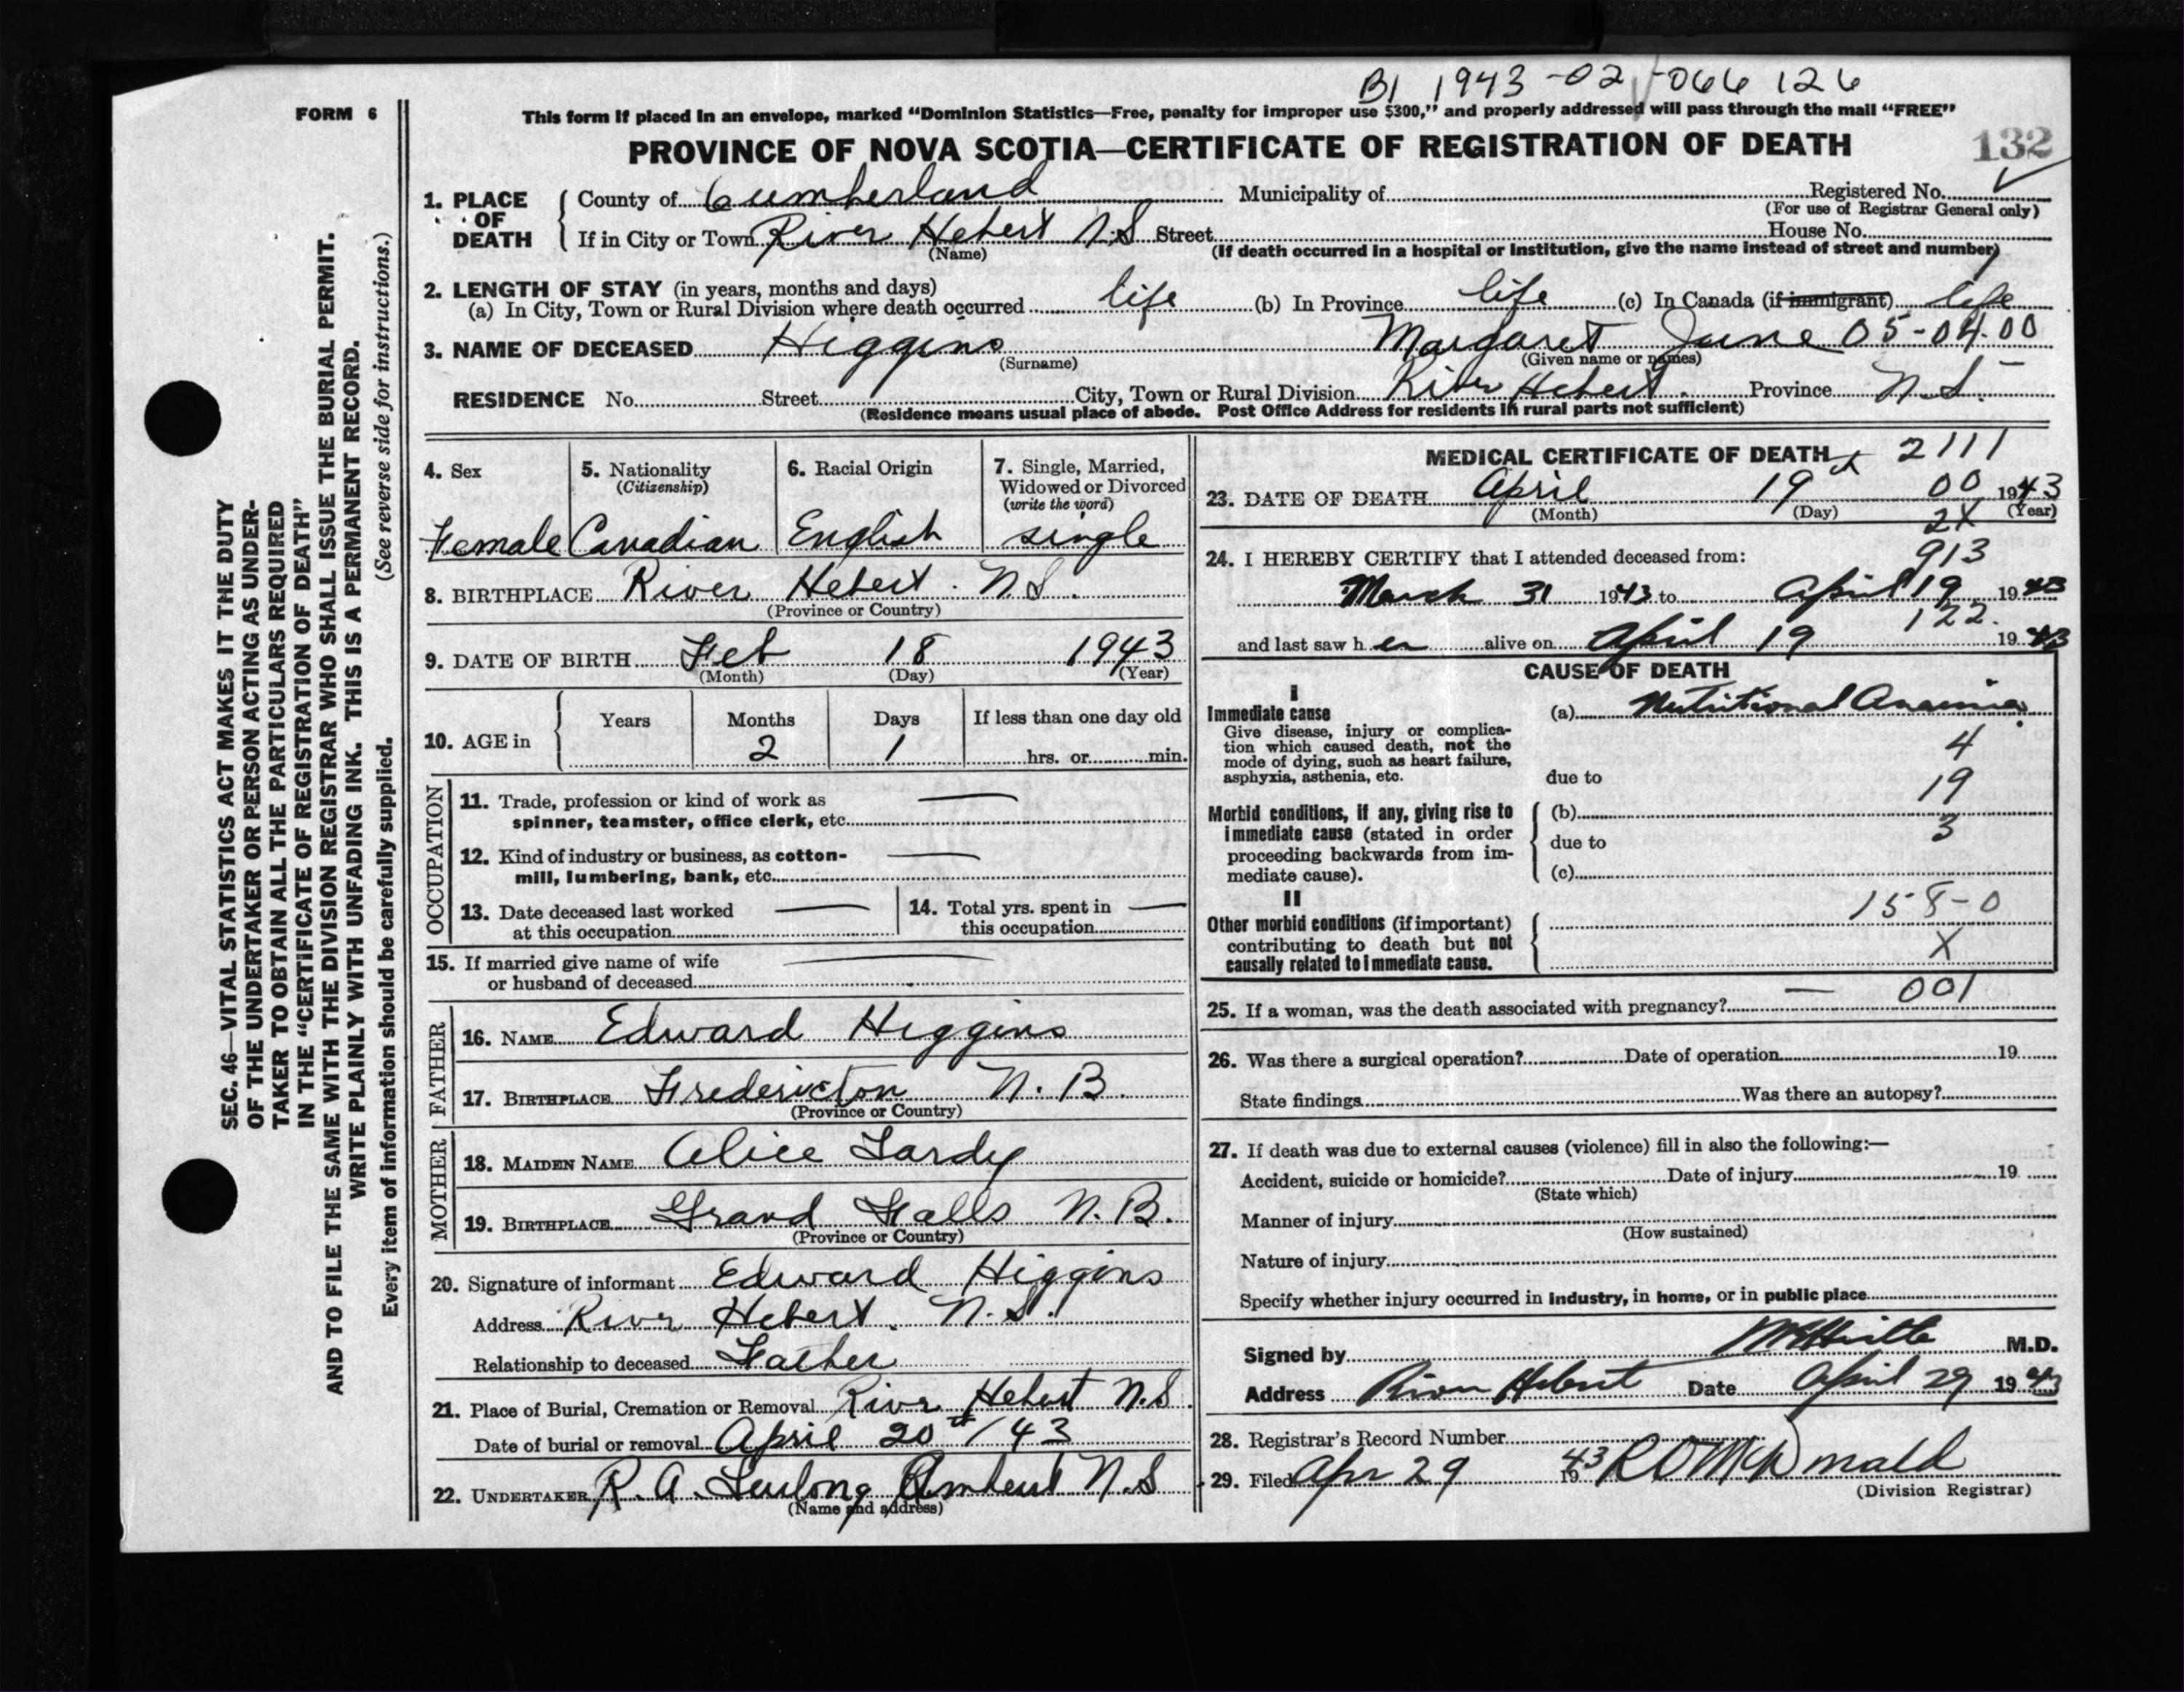 BI 1943-02-066126
FORM 6
This form if placed in an envelope, marked “Dominion Statistics—Free, penalty for improper use $300,” and properly addressed will pass through the mail “FREE”
PROVINCE OF NOVA SCOTIA—CERTIFICATE OF REGISTRATION OF DEATH 132
1. PLACE OF DEATH { County of Cumberland Municipality of Registered No.
(For use of Registrar General only)
If in City or Town River Hebert N.S Street House No.
(Name) (If death occurred in a hospital or institution, give the name instead of street and number)
2. LENGTH OF STAY (in years, months and days)
(a) In City, Town or Rural Division where death occurred life (b) In Province life (c) In Canada (if immigrant) life
3. NAME OF DECEASED Higgins Margaret June 05-04.00
(Surname) (Given name or names)
RESIDENCE No. Street City, Town or Rural Division River Hebert. Province N.S.
(Residence means usual place of abode. Post Office Address for residents in rural parts not sufficient)
4. Sex
Female
5. Nationality
(Citizenship)
Canadian
6. Racial Origin
English
7. Single, Married,
Widowed or Divorced
(write the word)
single
8. BIRTHPLACE River Hebert. N.S.
(Province or Country)
9. DATE OF BIRTH Feb 18 1943
(Month) (Day) (Year)
10. AGE in { Years Months Days If less than one day old
2 1 hrs. or min.
OCCUPATION
11. Trade, profession or kind of work as
spinner, teamster, office clerk, etc. —
12. Kind of industry or business, as cotton-
mill, lumbering, bank, etc. —
13. Date deceased last worked
at this occupation —
14. Total yrs. spent in
this occupation —
15. If married give name of wife
or husband of deceased —
FATHER
16. NAME Edward Higgins
17. BIRTHPLACE Fredericton N.B.
(Province or Country)
MOTHER
18. MAIDEN NAME Alice Tardy
19. BIRTHPLACE Grand Falls N.B.
(Province or Country)
20. Signature of informant Edward Higgins
Address River Hebert. N.S.
Relationship to deceased Father
21. Place of Burial, Cremation or Removal River Hebert N.S.
Date of burial or removal April 20th/43
22. UNDERTAKER R. A. Amherst N.S
(Name and address)
MEDICAL CERTIFICATE OF DEATH 2111
23. DATE OF DEATH April 19th 00 1943
(Month) (Day) (Year)
2X
24. I HEREBY CERTIFY that I attended deceased from:
913
March 31 1943 to April 19 1943
122.
and last saw her alive on April 19 1943
CAUSE OF DEATH
I
Immediate cause
Give disease, injury or complica-
tion which caused death, not the
mode of dying, such as heart failure,
asphyxia, asthenia, etc.
(a) Nutritional Anaemia
4
due to
19
Morbid conditions, if any, giving rise to
immediate cause (stated in order
proceeding backwards from im-
mediate cause).
(b)
3
due to
(c)
II
Other morbid conditions (if important)
contributing to death but not
causally related to immediate cause.
158-0
X
25. If a woman, was the death associated with pregnancy? — 001
26. Was there a surgical operation? Date of operation 19
State findings Was there an autopsy?
27. If death was due to external causes (violence) fill in also the following:—
Accident, suicide or homicide? Date of injury 19
(State which)
Manner of injury
(How sustained)
Nature of injury
Specify whether injury occurred in industry, in home, or in public place
Signed by M.D.
Address River Hebert Date April 29 1943
28. Registrar's Record Number
29. Filed Apr 29 1943 R O McDonald
(Division Registrar)
SEC. 46—VITAL STATISTICS ACT MAKES IT THE DUTY
OF THE UNDERTAKER OR PERSON ACTING AS UNDER-
TAKER TO OBTAIN ALL THE PARTICULARS REQUIRED
IN THE “CERTIFICATE OF REGISTRATION OF DEATH”
AND TO FILE THE SAME WITH THE DIVISION REGISTRAR WHO SHALL ISSUE THE BURIAL PERMIT.
WRITE PLAINLY WITH UNFADING INK. THIS IS A PERMANENT RECORD.
Every item of information should be carefully supplied. (See reverse side for instructions.)